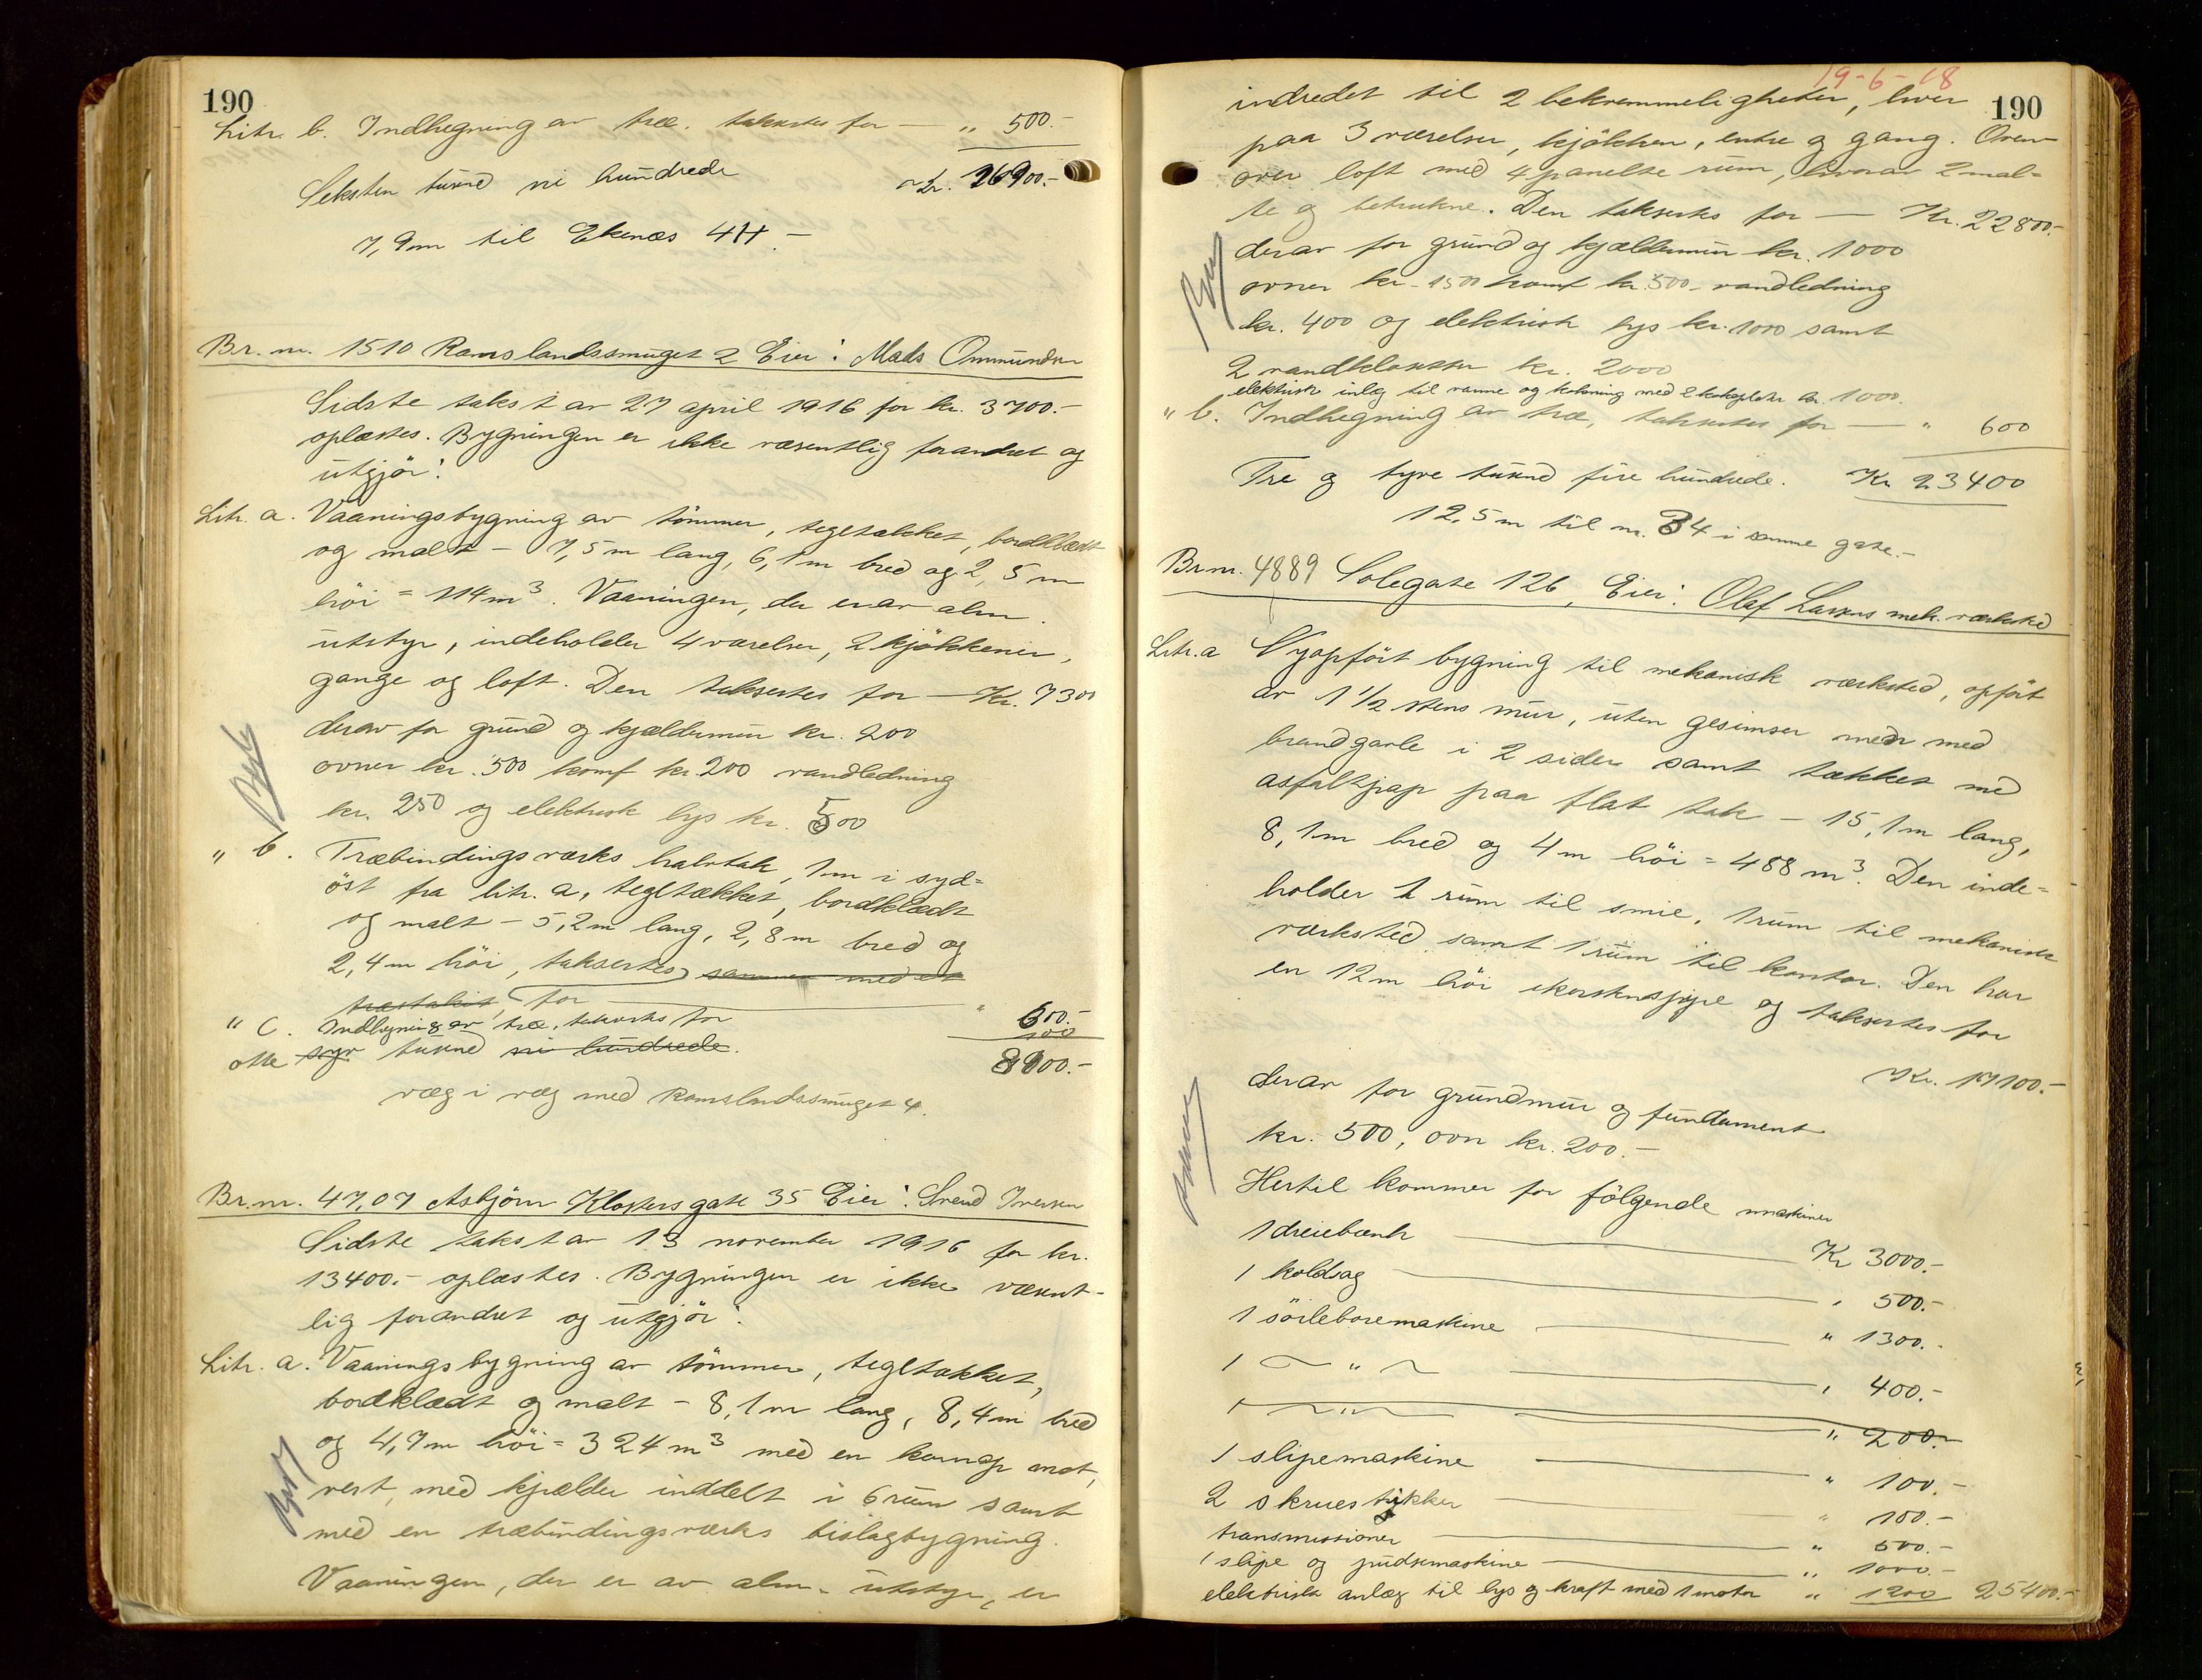 190
Litr. b. Indhegning av træ, taksertes for — " 500.-
Seksten tusend ni hundrede Kr. 16900.-
7,9m til Ekenæs 44.-
Br. nr. 1510 Ramslandssmuget 2 Eier: Mads Ommundsen
Sidste takst av 27 april 1916 for kr. 3700.-
oplæstes. Bygningen er ikke væsentlig forandret og
utgjør:
Litr. a. Vaaningsbygning av tömmer, tegltækket, bordklædt
og malt - 7,5m lang, 6,1m bred og 2,5m
höi = 114m³. Vaaningen, der er av alm.
utstyr, indeholder 4 værelser, 2 kjökkener,
gange og loft. Den taksertes for — Kr. 7300
derav for grund og kjældermur kr. 200
ovner kr. 500 komf kr. 200 vandledning
kr. 250 og elektrisk lys kr. 500
" b. Træbindingsverks halvtak, 1m i syd=
öst fra litr. a, tegltækket, bordklædt
og malt - 5,2m lang, 2,8m bred og
2,4m höi, taksertes sammen med et
træstakit, for — " 600.-
" c. Indhegning av træ, taksertes for 100
otte syv tusend ni hundrede. 8000.-
væg i væg med Ramslandssmuget 4.
Br. nr. 47,07 Asbjörn Klostersgate 35 Eier: Svend Iversen
Sidste takst av 13 november 1916 for kr.
13400.- oplæstes. Bygningen er ikke væsent-
lig forandret og utgjör:
Litr. a. Vaaningsbygning av tömmer, tegltækket,
bordklædt og malt - 8,1m lang, 8,4m bred
og 4,7m höi = 324m³ med en karnap mot
vest, med kjælder inddelt i 6 rum samt
med en træbindingsværks bislagbygning.
Vaaningen, der er av alm. utstyr, er
19-6-18
190
indredet til 2 bekvemmeligheter, hver
paa 3 værelser, kjökken, entre og gang. Oven-
over loft med 4 panelte rum, hvorav 2 mal=
te og betrukne. Den taksertes for — Kr. 22800.-
derav for grund og kjældermur kr. 1000
ovner kr. 1500 komf kr. 500 vandledning
kr. 400 og elektrisk lys kr. 1000 samt
2 vandklosetter kr. 2000
elektrisk inlæg til varme og kokning med 2 kokeplater kr. 1000.
" b. Indhegning av træ, taksertes for — " 600
Tre og tyve tusend fire hundrede. Kr 23400
12,5m til nr. 34 i samme gate.-
Br. nr. 4889 Solegate 126, Eier: Olaf Larsens mek. verksted
Litr. a Nyopfört bygning til mekanisk verksted, opfört
av 1 1/2 stens mur, uten gesimser men med
brandgavle i 2 sider samt tækket med
asfaltpap paa flat tak - 15,1m lang,
8,1m bred og 4m höi = 488m³. Den inde=
holder 1 rum til smie, 1 rum til mekanisk
verksted samt 1 rum til kontor. Den har
en 12m höi skorstenspipe og taksertes for
Kr. 17100.-
derav for grundmur og fundament
kr. 500, ovn kr. 200.-
Hertil kommer for fölgende maskiner
1 dreiebænk — Kr 3000.-
1 koldsag — " 500.-
1 söileboremaskine — " 1300.-
1 — " — " 400.-
1 — " — " 200.-
1 slipemaskine — " 100.-
2 skruestikker — " 100.-
transmissioner — " 500.-
1 slipe og pudsemaskine — " 1000.-
elektrisk anlæg til lys og kraft med 1 motor " 1200 25400.-